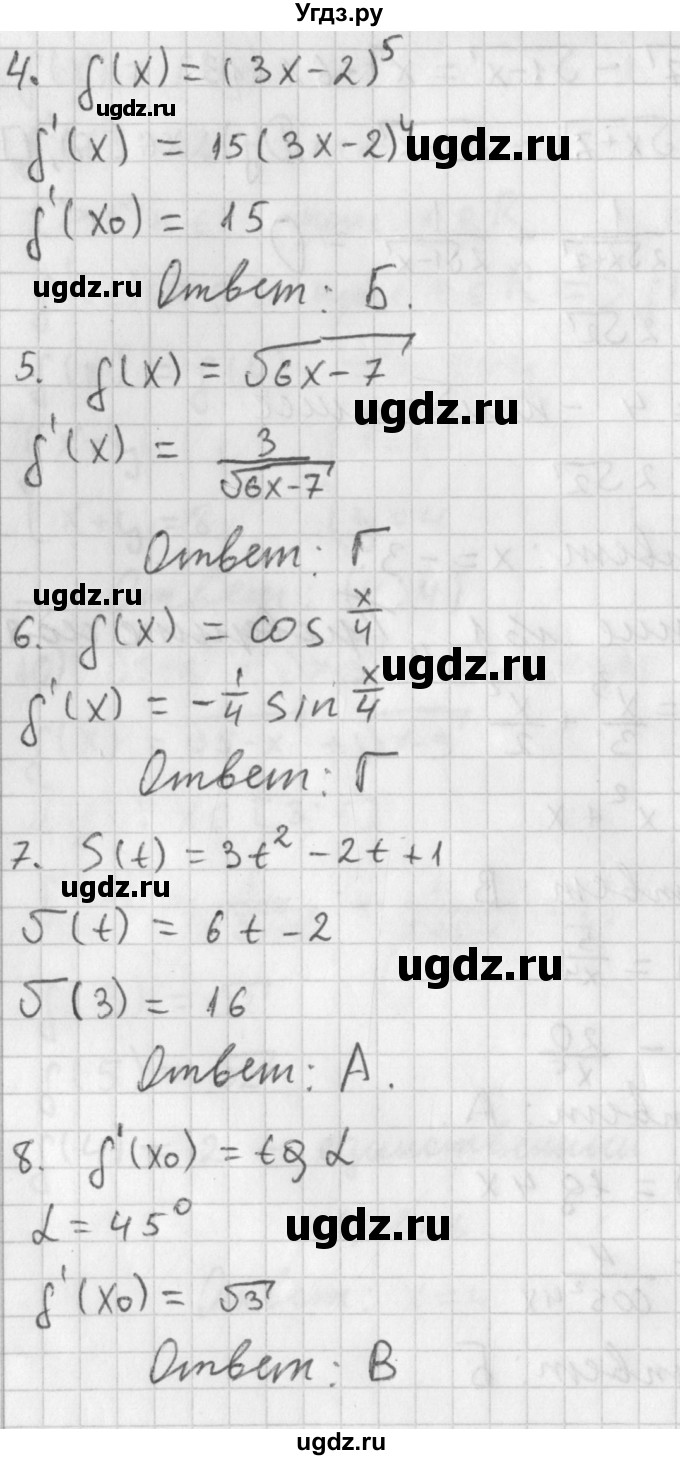 Угдз.ру
4. f(x) = (3x-2)^5
ugdz.ru
f'(x) = 15(3x-2)^4
ugdz.ru
f'(x0) = 15
ugdz.ru
Ответ: Б.
5. f(x) = √6x-7
ugdz.ru
f'(x) = 3/√6x-7
Ответ: Г
ugdz.ru
6. f(x) = cos x/4
ugdz.ru
f'(x) = -1/4 sin x/4
Ответ: Г
7. S(t) = 3t² - 2t + 1
ugdz.ru
υ(t) = 6t - 2
ugdz.ru
υ(3) = 16
Ответ: А.
8. f'(x0) = tg α
α = 45°
ugdz.ru
f'(x0) = √3
Ответ: В
ugdz.ru